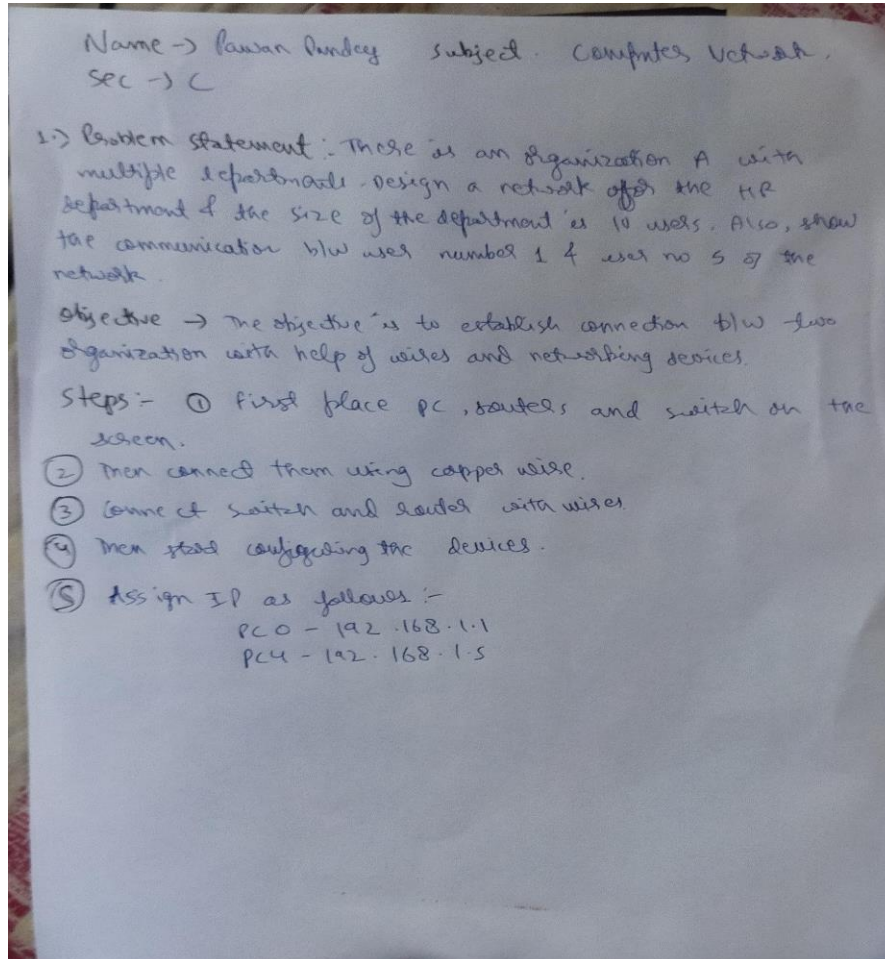 Name -> Pawan Pandey subject. Computer Network.
Sec -> C
1.) Problem statement :- There is an organization A with
multiple departments. Design a network for the HR
department & the size of the department is 10 users. Also, show
the communication b/w user number 1 & user no 5 of the
network.
Objective -> The objective is to establish connection b/w two
organization with help of wires and networking devices.
Steps :- ① First place PC, routers and switch on the
screen.
② Then connect them using copper wire.
③ Connect switch and router with wires.
④ Then start configuring the devices.
⑤ Assign IP as follows :-
PC0 - 192.168.1.1
PC4 - 192.168.1.5